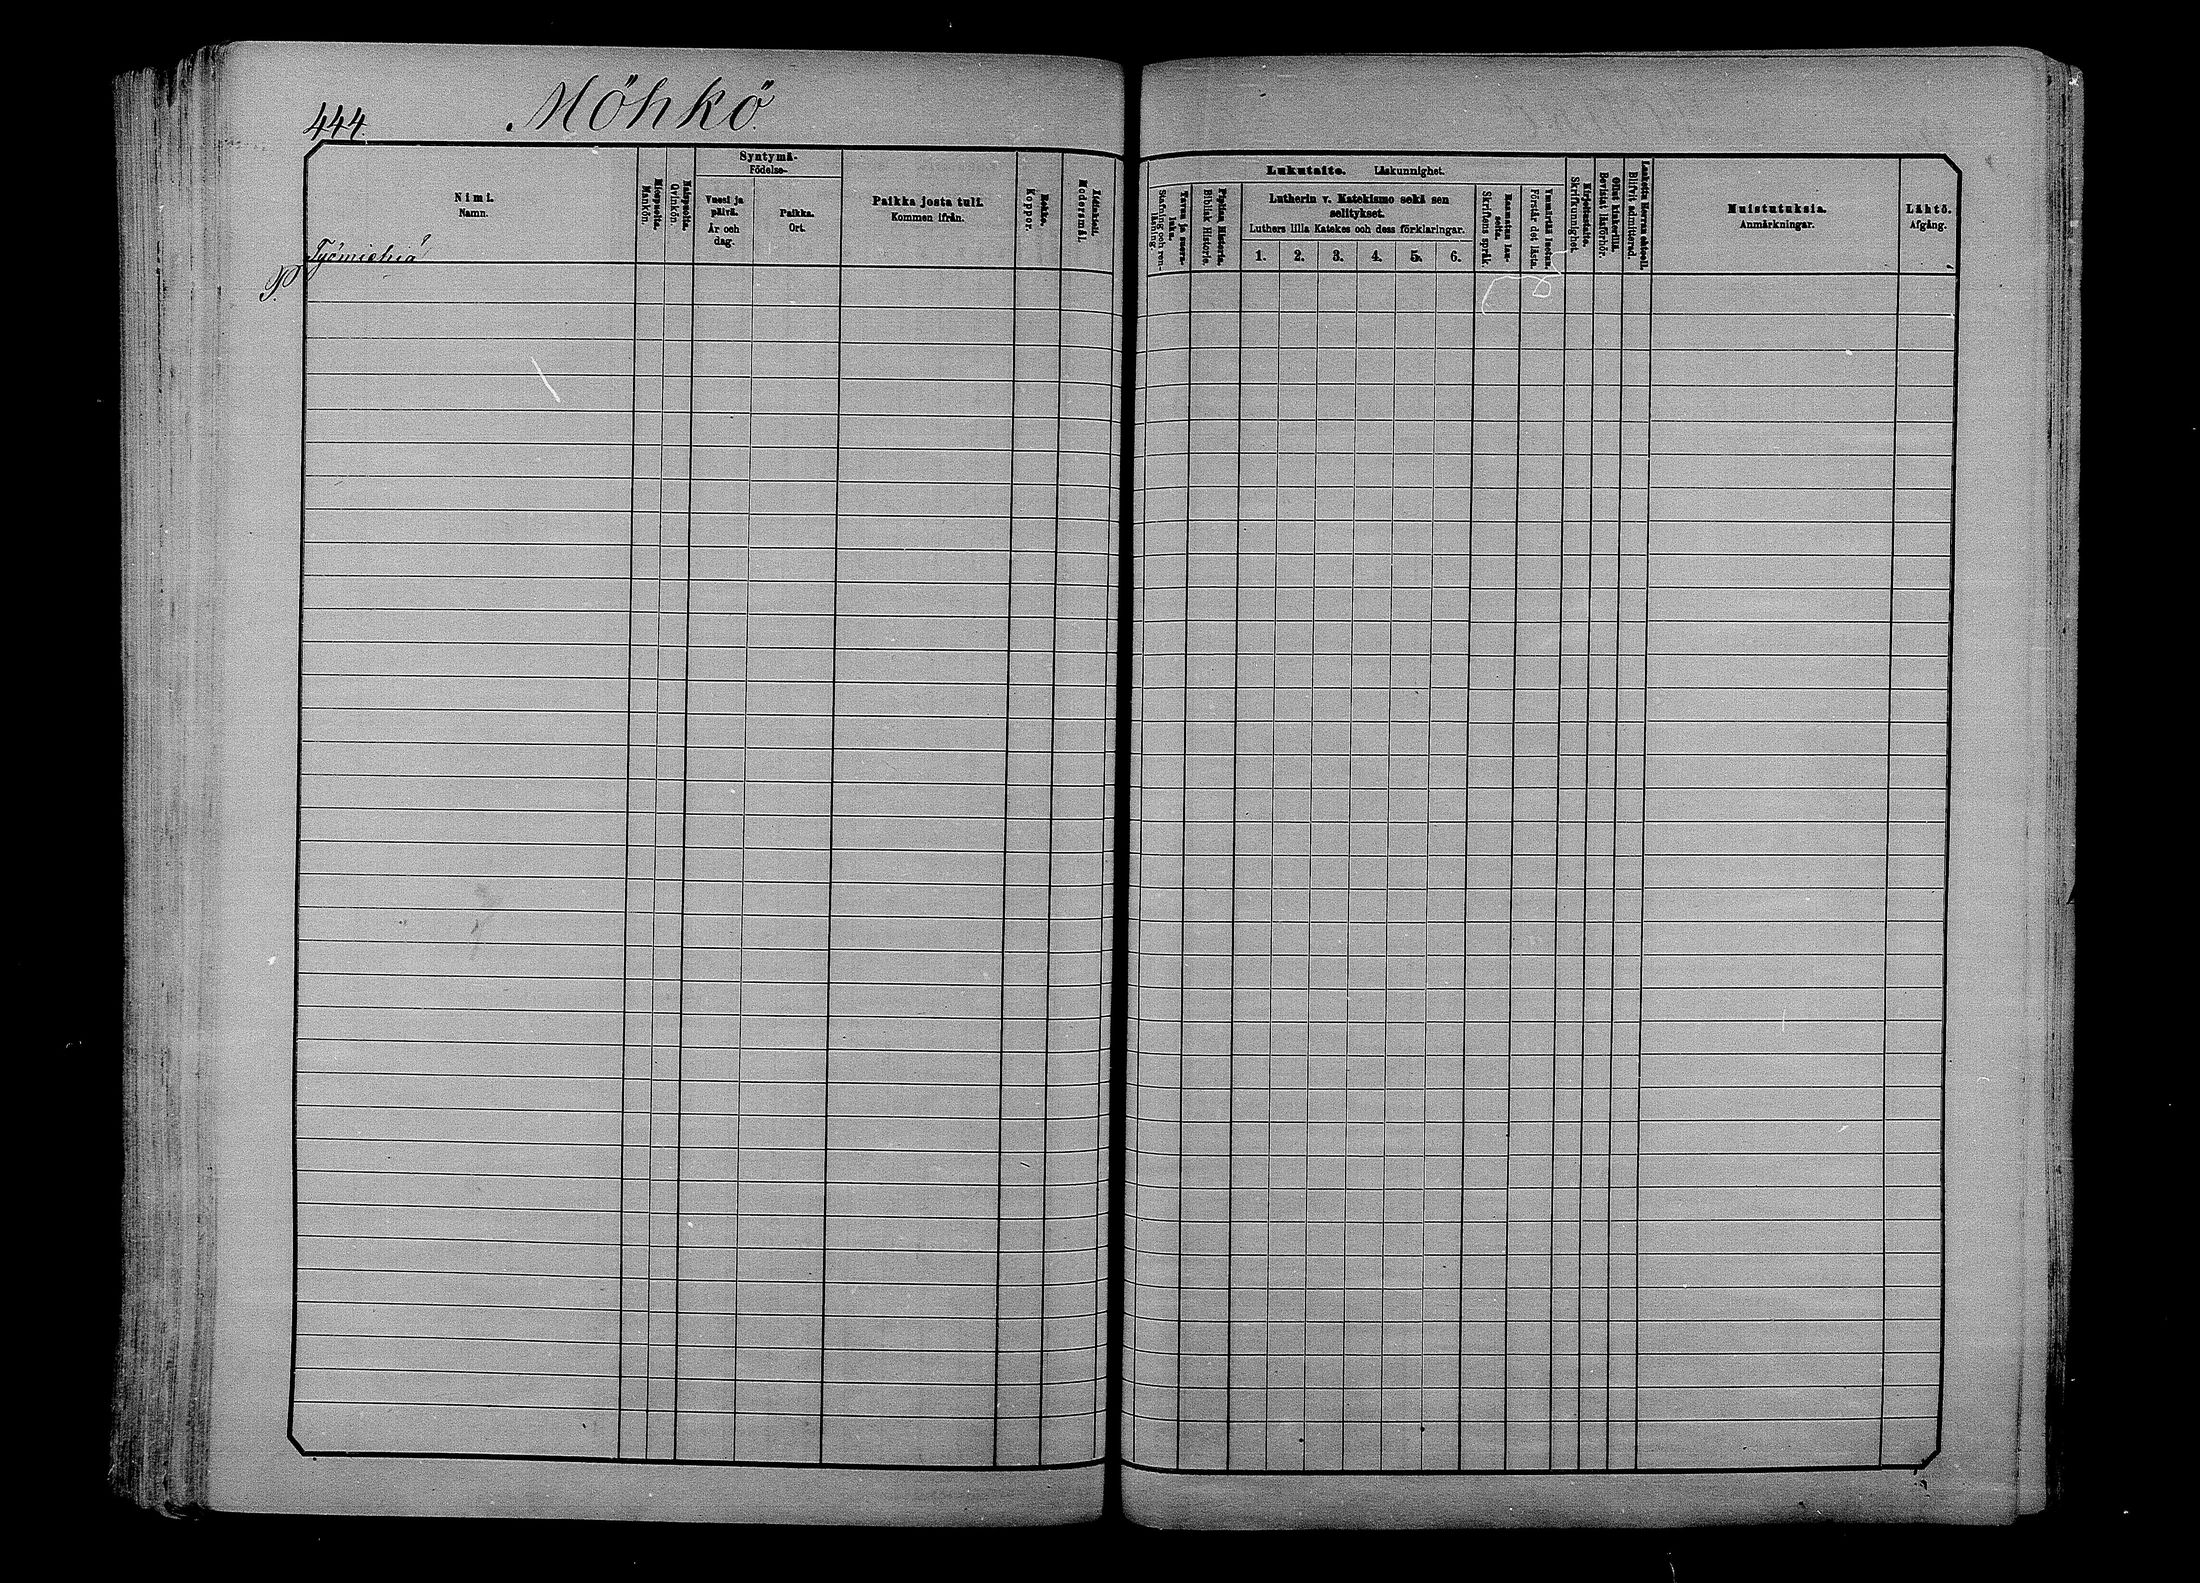 444.
Möhkö.
Nimi.
Namn.
Miespuolia.
Mankön.
Naispuolia.
Qvinkön.
Syntymä-
Födelse-
Vuosi ja
päivä.
År och
dag.
Paikka.
Ort.
Paikka josta tuli.
Kommen ifrån.
Rokko.
Koppor.
Äidinkieli.
Modersmål.
Työmiehiä
P.
Lukutaito. Läskunnighet.
Tavun ja suora-
luku.
Stafning och ren-
läsning.
Piplian Historia.
Biblisk Historie.
Lutherin v. Katekismo sekä sen
selitykset.
Luthers lilla Katekes och dess förklaringar.
1. 2. 3. 4. 5. 6.
Raamatun lau-
seita.
Skriftens språk.
Ymmärtää luetun.
Förstår det lästa.
Kirjoitustaito.
Skrifkunnighet.
Ollut kinkerillä.
Bevistat läsförhör.
Laskettu Herran ehtool.
Blifvit admitterad.
Muistutuksia.
Anmärkningar.
Lähtö.
Afgång.